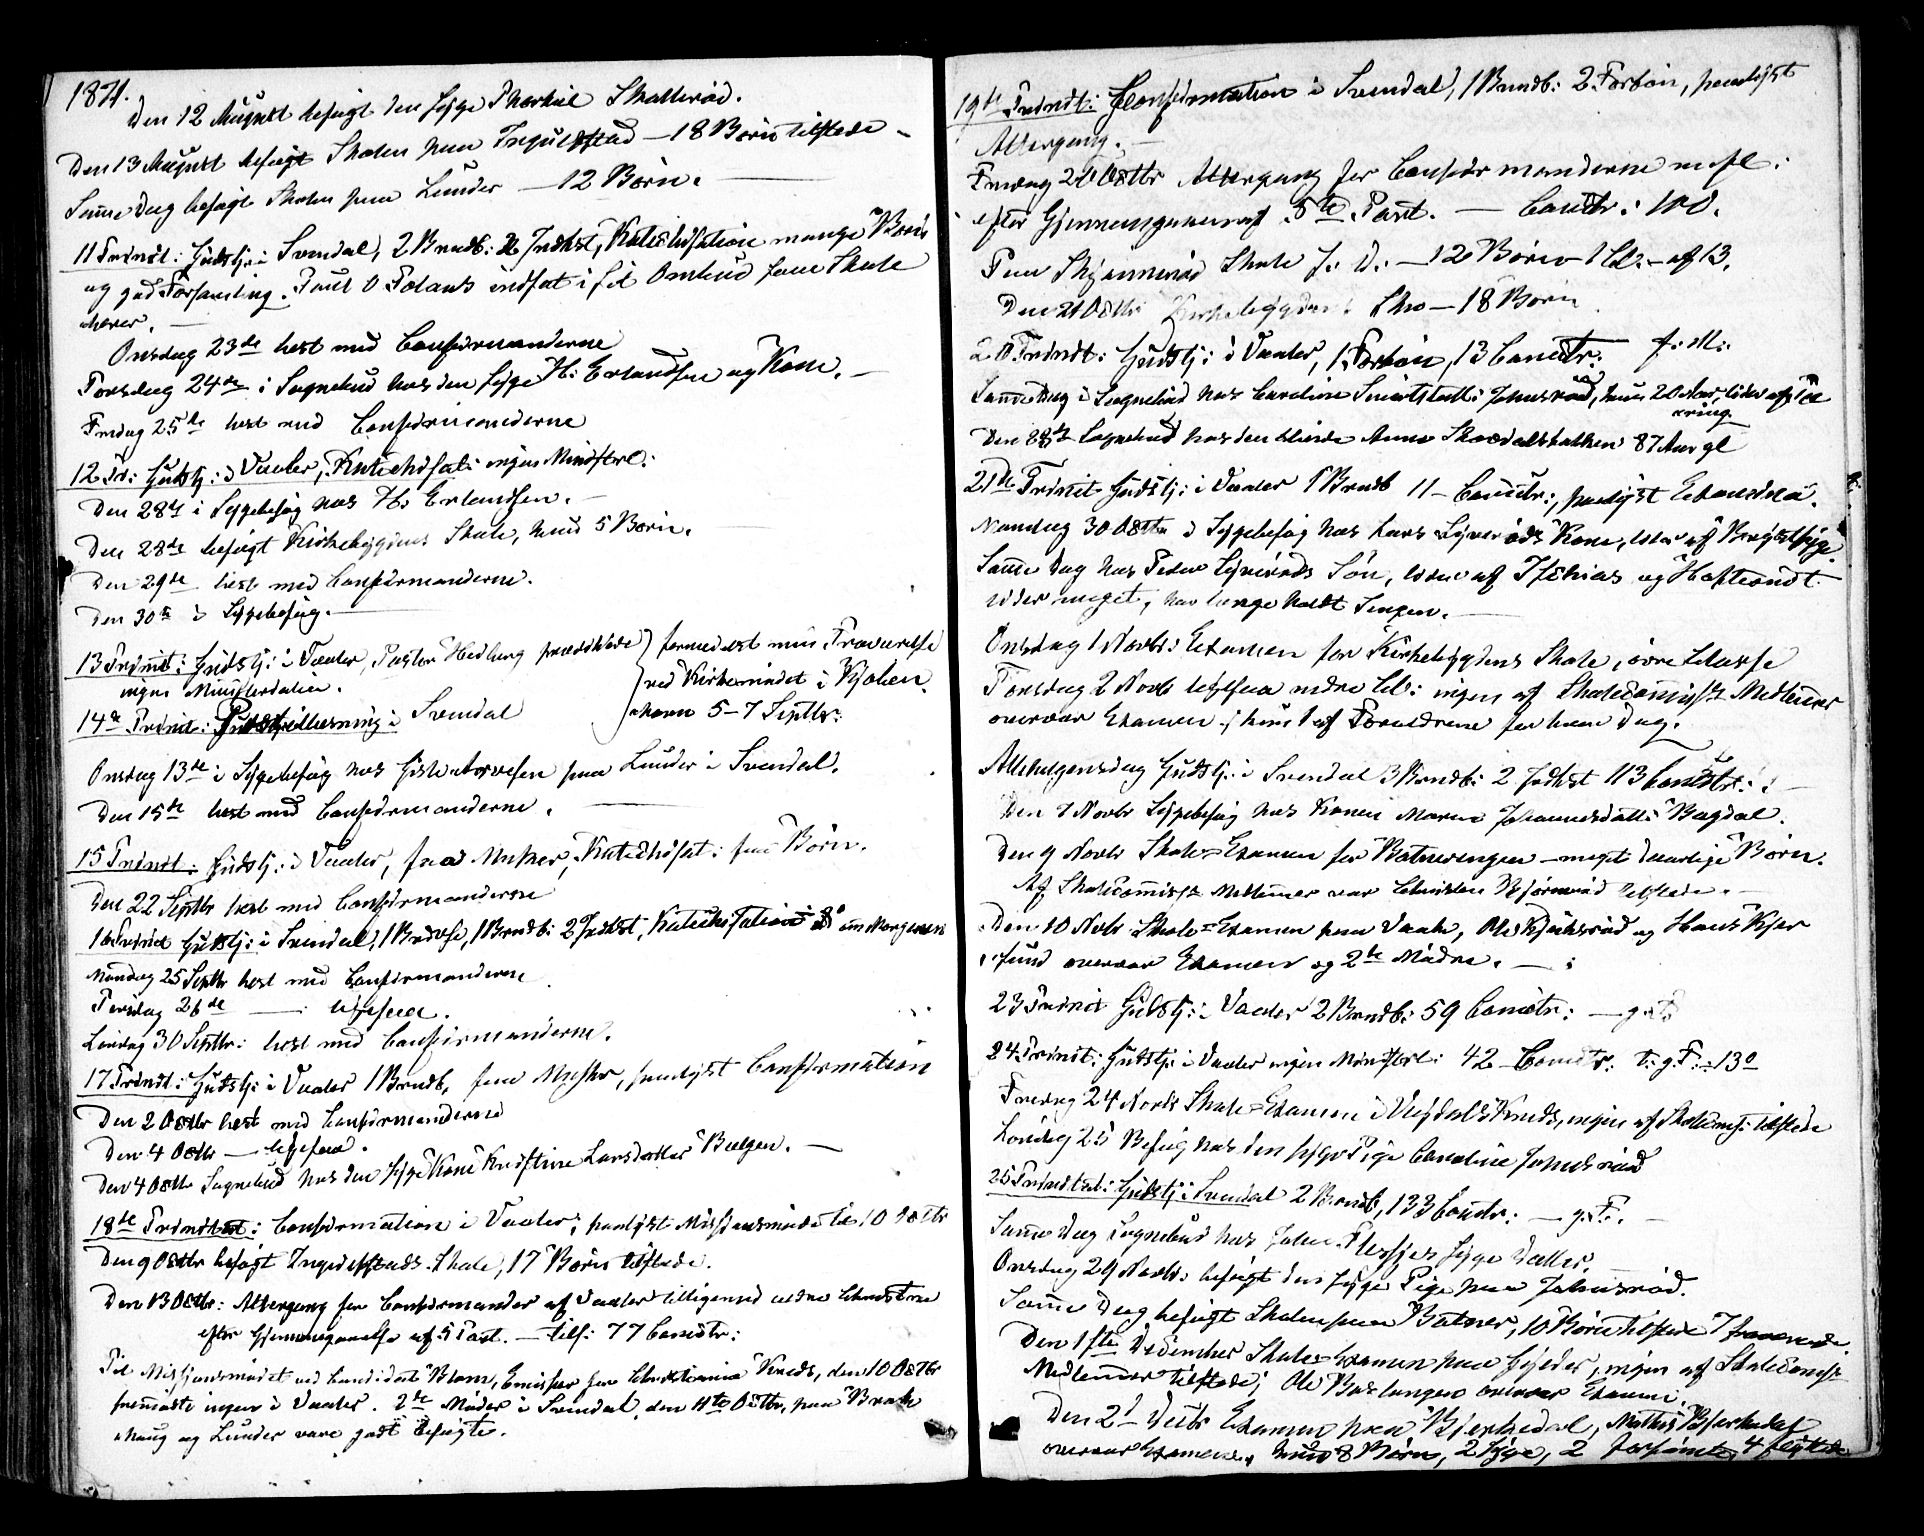 1871.
Den 12 August besøgt den syge Thorkil Skallerød.
Den 13 August besøgt Skolen paa Ingulfstad – 18 Børn tilstede –
Samme Dag besøgt Skolen paa Lunder – 12 Børn.
11 Trinit: Gudstj: i Svendal, 2 Brndb: 2 Indkst, Katechisation mange Børn
og god Forsamling. Poul O Folans indsat i sit Ombud som Skole
lærer.
Onsdag 23de læst med Confirmanderne
Torsdag 24de i Sognebud hos den syge H: Erlandsen og Kone. –
Fredag 25de læst med Confirmanderne
12 Tr: Gudstj: i Vaaler, Katechisat: ingen Ministerl:
Den 28de i Sygebesøg hos H: Erlandsen. –
Den 28de besøgt Kirkebygdens Skole, kun 5 Børn.
Den 29de læst med Confirmanderne.
Den 30te i Sygebesøg.
13 Trinit: Gudstj: i Vaaler, Pastor Hedberg prædikede formedelst min Fraværelse
ingen Ministerialia. ved Kirkemødet i Kjøben
14de Trinit: i Svendal havn 5–7 Septbr:
Onsdag 13de i Sygebesøg hos paa Lunder i Svendal.
Den 15de læst med Confirmanderne.
15 Trinit: Gudstj: i Vaaler, faa Msker, Katechisat: faa Børn.
Den 22 Septbr læst med Confirmanderne
16 Trinit Gudstj: i Svendal, 1 Brdvse, 1 Brndb: 2 Indkst, Katechisation om Morgenen
Mandag 25 Septbr læst med Confirmanderne
Tirsdag 26de — ligesaa.
Løverdag 30 Septbr: læst med Confirmanderne.
17 Trinit: Gudstj: i Vaaler 1 Brndb, faa Msker, paalyst Confirmation
Den 2 Octbr læst med Confirmanderne
Den 4 Octbr — ligesaa.
Den 4 Octbr Sognebud hos den syge Kone Kristine Larsdatter Bælgen. –
18de Trinitat: Confirmation i Vaaler, paalyst Missionsmøde til 10 Octbr
Den 9 Octbr besøgt Ingulfstads Skole, 17 Børn tilstede.
Den 13 Octbr: Altergang for Confirmander af Vaaler tilligemed ældre Christne
efter Gjennemgaaelse af 5 Part. – tils: 77 Comctr:
Til Missionsmødet ved Candidat Blom, Emissær for Christiania Kreds, den 10 Octbr
fremmødte ingen i Vaaler. 2de Møder i Svendal, den 11te Octbr, paa Bræk
haug og Lunder vare godt besøgte.
19de Trinit: Confirmation i Svendal, 1 Brndb: 2 Forbøn, paalyst
Altergang. –
Fredag 20 Octbr Altergang for Confirmanderne m: fl:
efter Gjennemgaaelse af 5te Part. – Comctr: 100.
Paa Skjønnerød Skole s: D: – 12 Børn – 1 Cl: – af 13.
Den 21 Octbr Kirkebygdens Sko – 18 Børn
20 Trinit: Gudstj: i Vaaler, 1 Forbøn, 13 Comctr: f: M:
Samme Dag i Sognebud hos Caroline Johnsrød, kun 20 Aar, lider af Tæ
ring.
Den Sognebud hos den blinde Anne Skovdalsbakken 87 Aar gl
21de Trinit Gudstj: i Vaaler 1 Brndb 11 – Comctr:, paalyst Examina.
Mandag 30 Octbr i Sygebesøg hos Lars Kone, lider af Brystsyge.
Samme Dag hos Peder Søn, lider af Ischias og Hofteondt
lider meget, har længe holdt Sengen.
Onsdag 1 Novbr: Examen for Kirkebygdens Skole, øvre Classe
Torsdag 2 Novbr ligesaa nedre Cl: ingen af Skolecommiss: Medlemmer
overvær Examen, kun 1 af Forældrene for hver Dag.
Allehelgensdag Gudstj: i Svendal 3 Brndb: 2 Indkst 113 Comctr:
Den 7 Novbr Sygebesøg hos Konen Maren Johannesdatt: Bagdal.
Den 9 Novbr Skole-Examen for Botnerengen – meget daarlige Børn.
Af Skolecommiss: Medlemmer var Christen Bjørnerød tilstede. –
Den 10 Novbr Skole-Examen paa Vaale, Ole Kjæksrød og Hans Kjær
sund overvær Examen og 2de Mødre. –
23 Trinit Gudstj: i Vaaler 2 Brndb: 59 Comctr: – g: F:
24 Trinit: Gudstj: i Vaaler ingen Ministerl: 42 – Comctr: t: g: F: – 13°
Fredag 24 Novbr Skole-Examen i Kreds, ingen af Skolecomss: tilstede
Løverdag 25 Besøg hos den syge Pige Caroline Johnsrød
25 Trinitat: Gudstj: i Svendal 2 Brndb, 133 Comctr: – g: F:. –
Samme Dag Sognebud hos Johan Flesjes syge Datter.
Onsdag 29 Novbr: besøgt den syge Pige paa Johnsrød.
Samme Dag besøgt Skolen paa Botner, 10 Børn tilstede 7 fraværende.
Den 1ste December Skole-Examen paa Gjeder, ingen af Skolecomss:
Medlemmer tilstede; Ole Baslangen overvær Examen.
Den 2 Decbr Examen paa Bjerkedal, Mathis Bjerkedal
overvær Examenen, kun 8 Børn, 2 syge, 2 forsømte, 4 flyttede